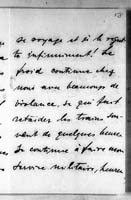 ce voyage et si le regret
te infiniment! Le
froid continue chez
nous avec beaucoup de
violence, ce qui fait
retarder les trains sou-
vent de quelques heures
Je continue à faire mon
service militaire, heureu